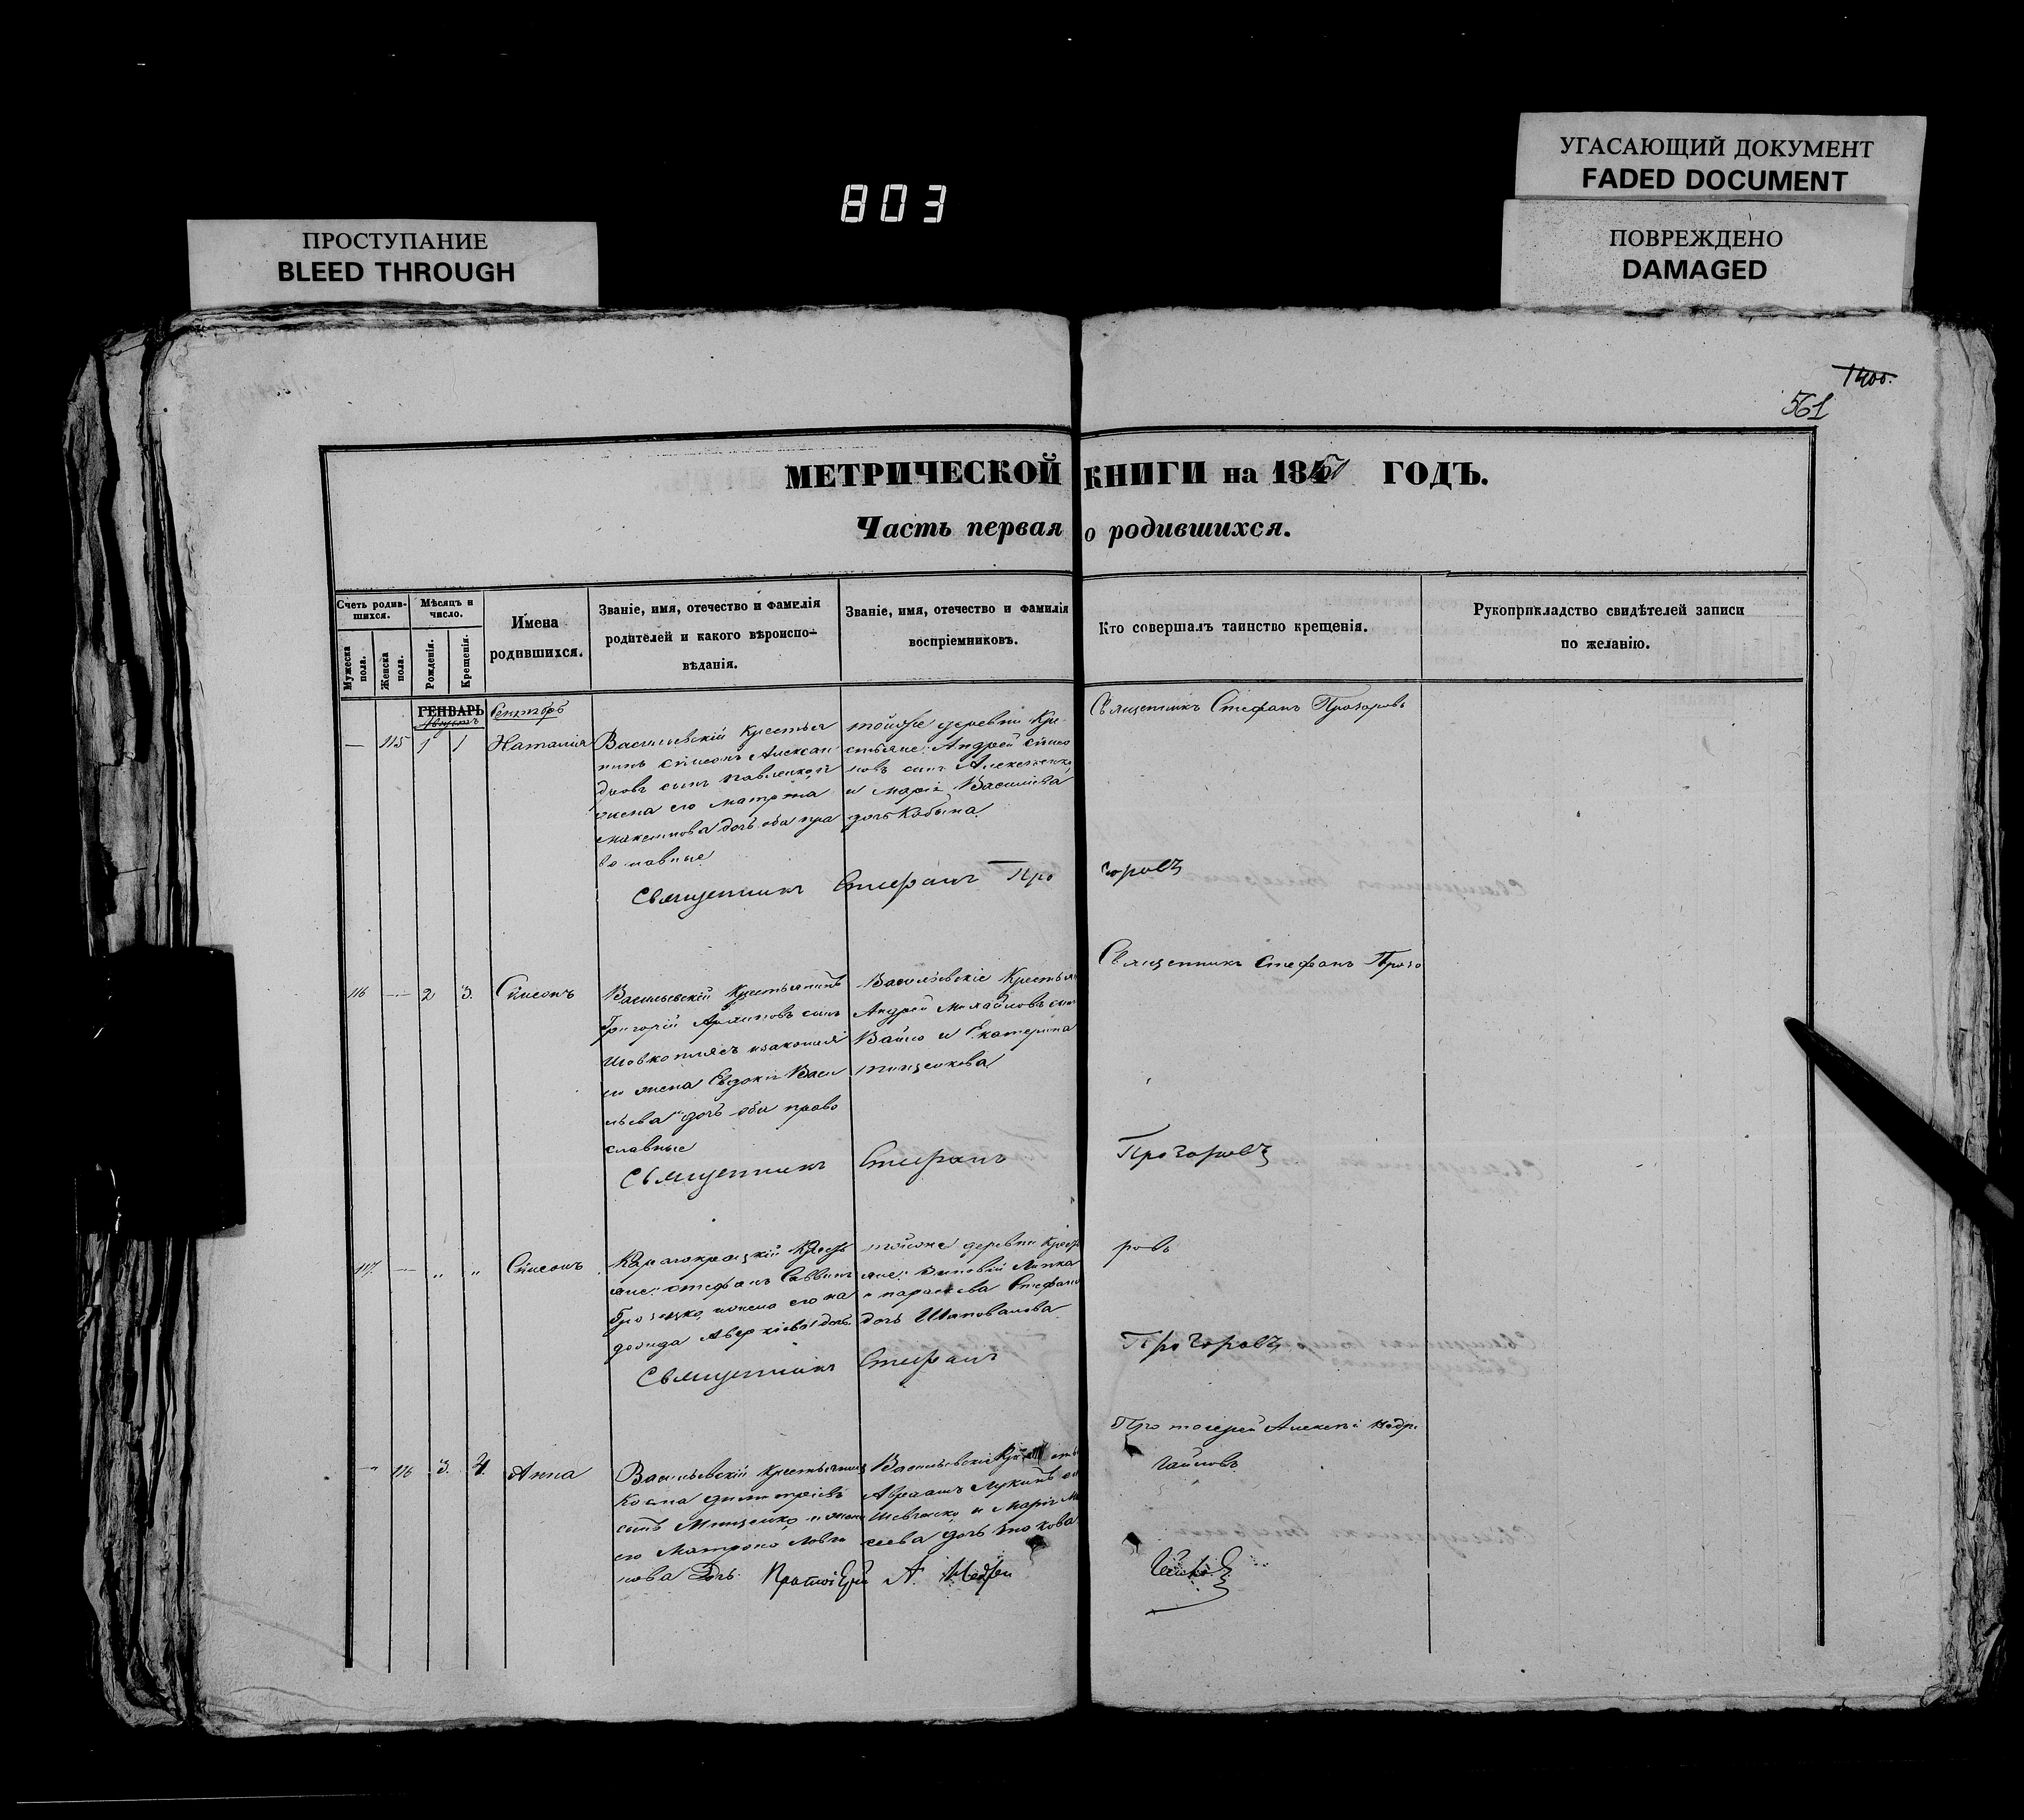 УГАСАЮЩИЙ ДОКУМЕНТ
FADED DOCUMENT
803
ПРОСТУПАНИЕ
BLEED THROUGH
ПОВРЕЖДЕНО
DAMAGED
1400.
561
МЕТРИЧЕСКОЙ КНИГИ на 1851 ГОДЪ.
Часть первая о родившихся.
Счетъ родив-
шихся.
Мужеска
пола.
Женска
пола.
Мѣсяцъ и
число.
Рожденія.
Крещенія.
Имена
родившихся.
Званіе, имя, отечество и фамилія
родителей и какого вѣроиспо-
вѣданія.
Званіе, имя, отечество и фамилія
воспріемниковъ.
Кто совершалъ таинство крещенія.
Рукоприкладство свидѣтелей записи
по желанію.
ГЕНВАРЬ Сентябрь
— 115 1 1 Наталия
Васильевскій Крестья
нинъ Симеонъ Алексан
дровъ сынъ Павленко и
жена его Матрона
Максимова дочь оба пра
во лавные
тойже деревни Кре
стьяне: Андрей Симео
новъ сынъ Алексеенко
и Марія Васильева
дочь Кобына
Священникъ Стефанъ Прозоровъ
Священникъ Стефанъ Про зоровъ
116 — 2 3. Симеонъ
Васильевскій Крестьянинъ
Григорій сынъ
Шовкоплясъ изаконная
его жена Евдокія Васи
льева дочь оба право
славные
Васильевскіе Крестья
Андрей Михайловъ сын
и Екатерина
Священникъ Стефанъ Прозо
Священникъ Стефанъ Прозоровъ
117. — „ „ Симеонъ
Крест
яне: Стефанъ Саввинъ
ижена его На
дежда Аверкіева дочь
тойже деревни Крест
яне: Зиновій Липка
и Параскева Стефано
дочь Шаповалова
ровъ
Священникъ Стефанъ Прозоровъ
— 116 3. 4. Анна
Васильевскій Крестьянинъ
Косма Димитріевъ
сынъ Мищенко и жена
его Матрона Логви
нова Дочь.
Васильевскіе Кре стья
Авраамъ Лукинъ сы
Шевченко и Марія Мо
сеева дочь
Протоіерей Алексѣй Недри
гайловъ
Протоіерей А. Недри гайловъ